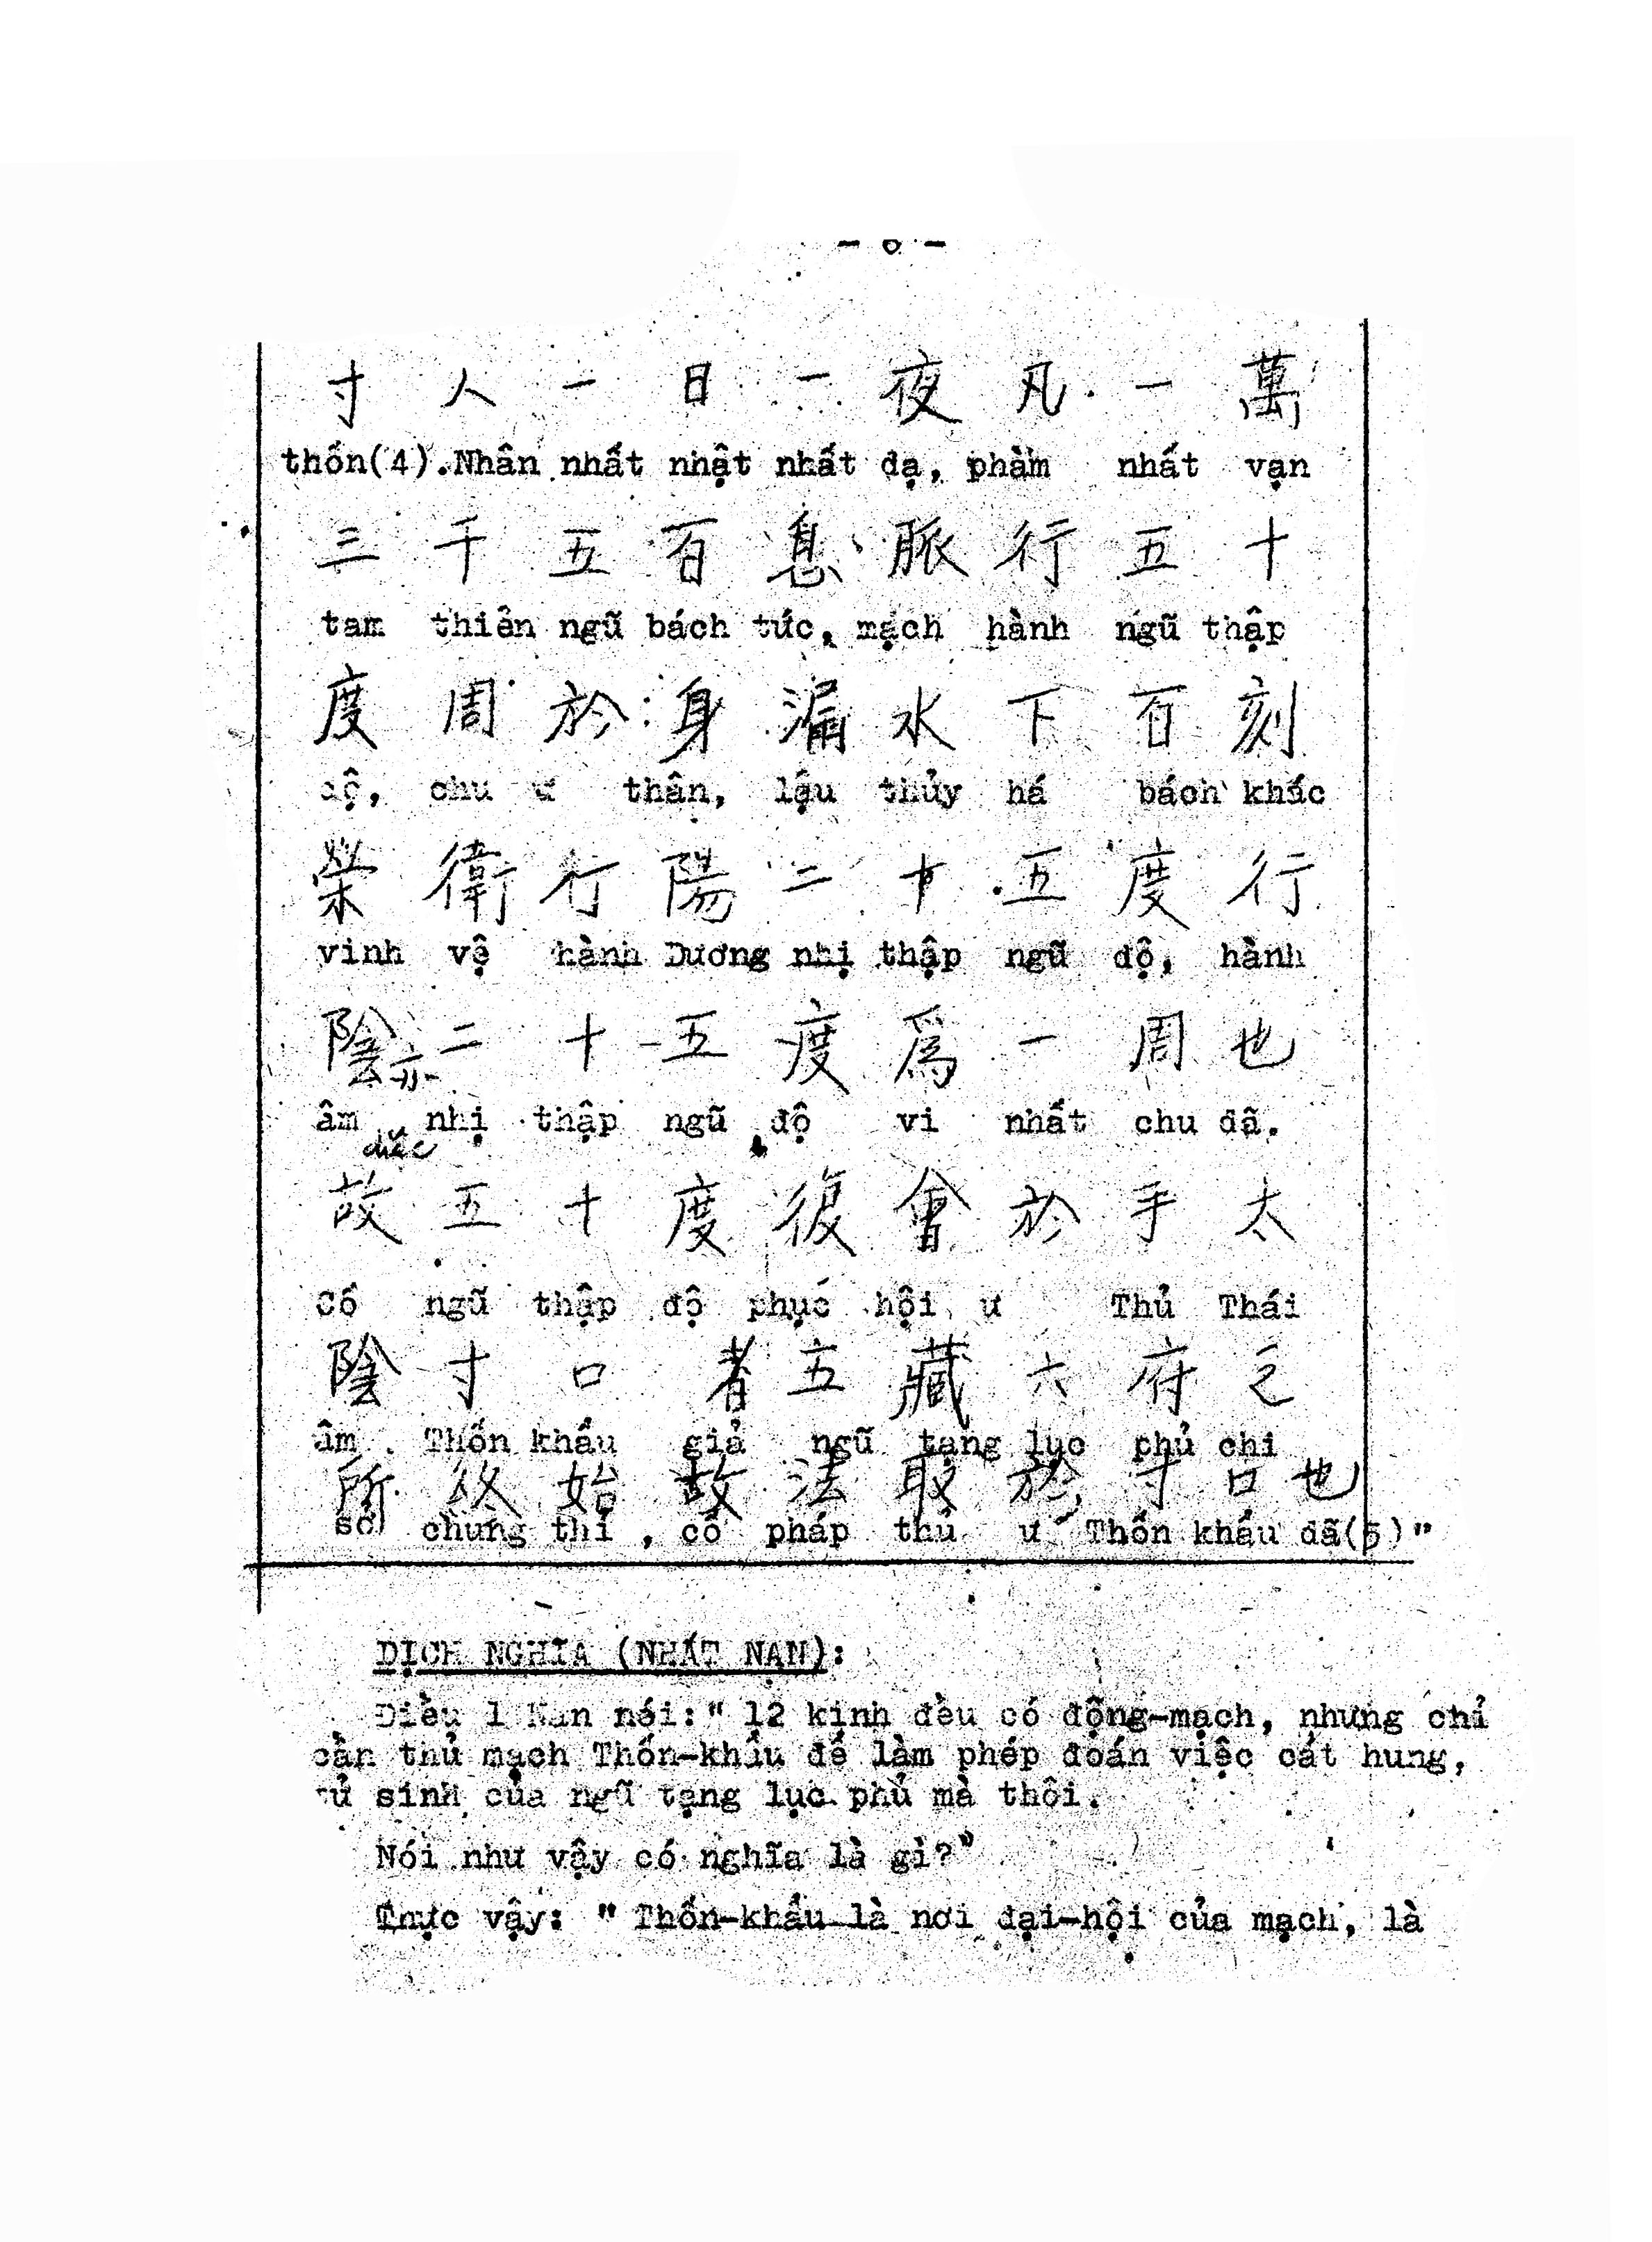 寸 人 一 日 一 夜 凡 一 萬
thốn(4).Nhân nhất nhật nhất dạ, phàm nhất vạn
三 千 五 百 息 脈 行 五 十
tam thiên ngũ bách tức, mạch hành ngũ thập
度 周 於 身 漏 水 下 百 刻
độ, chu ư thân, lậu thủy há bách khắc
榮 衛 行 陽 二 十 五 度 行
vinh vệ hành Dương nhị thập ngũ độ, hành
陰 亦 二 十 五 度 爲 一 周 也
âm diệc nhị thập ngũ độ vi nhất chu dã.
故 五 十 度 復 會 於 手 太
Cố ngũ thập độ phục hội ư Thủ Thái
陰 寸 口 者 五 藏 六 府 之
âm Thốn khẩu giả ngũ tạng lục phủ chi
所 终 始 故 法 取 於 寸 口 也
sở chung thỉ , cố pháp thủ ư Thốn khẩu dã(5)"
DỊCH NGHĨA (NHẤT NẠN):
Điều 1 Nạn nói:" 12 kinh đều có động-mạch, nhưng chỉ
cần thủ mạch Thốn-khẩu để làm phép đoán việc cát hung,
tử sinh của ngũ tạng lục phủ mà thôi.
Nói như vậy có nghĩa là gì?"
Thực vậy: " Thốn-khẩu là nơi đại-hội của mạch, là